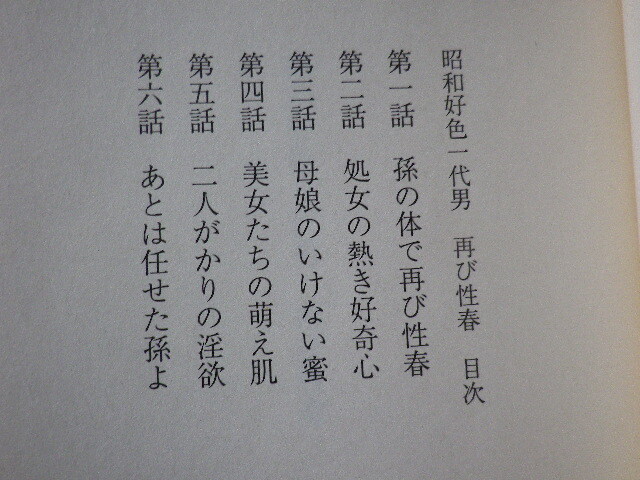 昭和好色一代男 再び性春 目次
第一話 孫の体で再び性春
第二話 処女の熱き好奇心
第三話 母娘のいけない蜜
第四話 美女たちの萌え肌
第五話 二人がかりの淫欲
第六話 あとは任せた孫よ